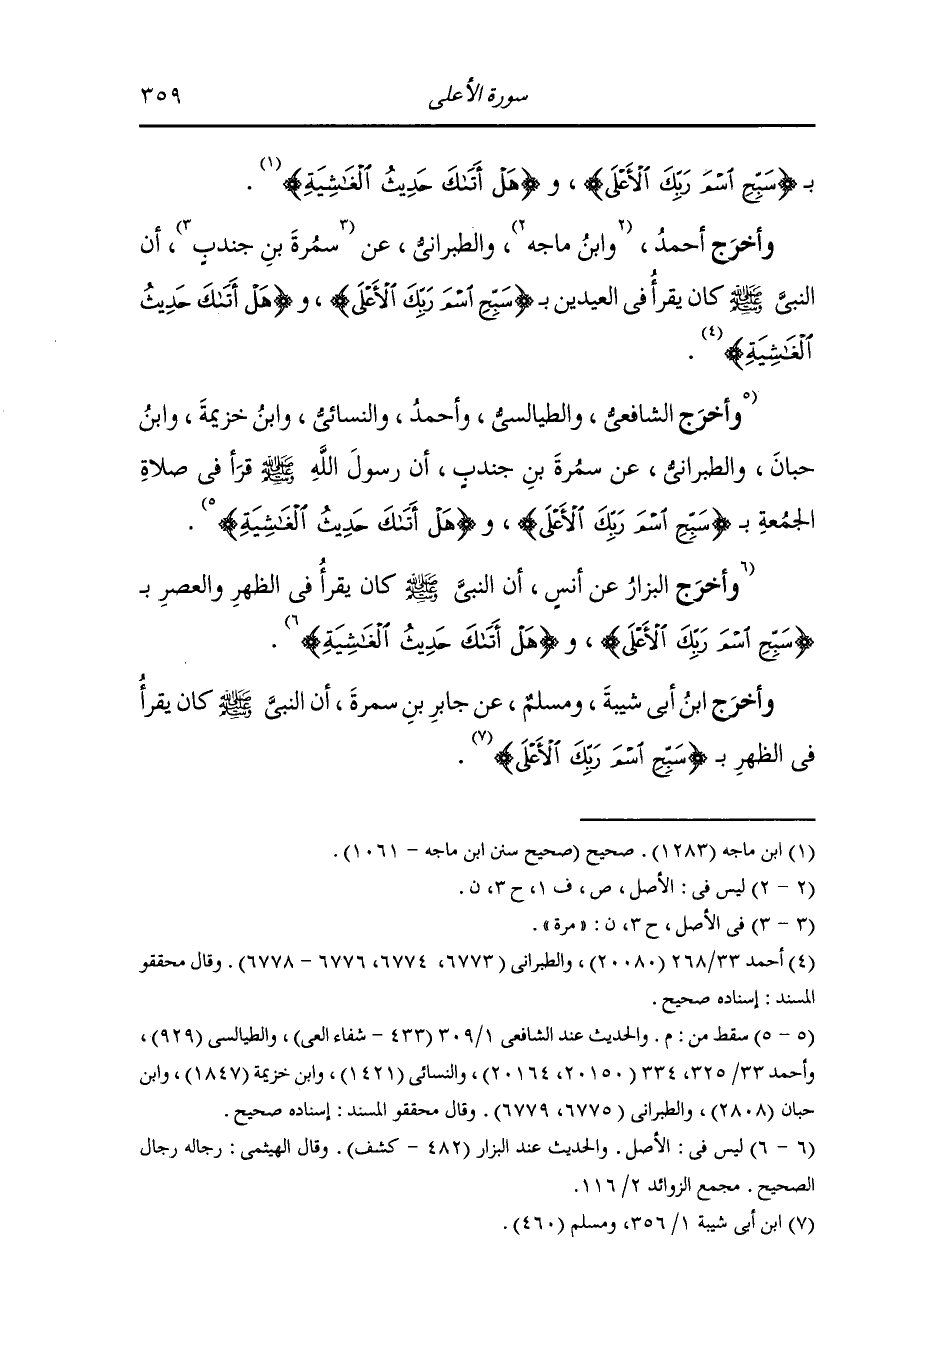 سورة الأعلى ٣٥٩
بـ ﴿سَبِّحِ ٱسْمَ رَبِّكَ ٱلْأَعْلَى﴾ ، و ﴿هَلْ أَتَىٰكَ حَدِيثُ ٱلْغَٰشِيَةِ﴾(١) .
وأخرَج أحمدُ ، (٢وابنُ ماجه٢) ، والطبرانىُّ ، عن (٣سمُرةَ بنِ جندبٍ٣) ، أن
النبىَّ ﷺ كان يقرأُ فى العيدين بـ ﴿سَبِّحِ ٱسْمَ رَبِّكَ ٱلْأَعْلَى﴾ ، و ﴿هَلْ أَتَىٰكَ حَدِيثُ
ٱلْغَٰشِيَةِ﴾(٤) .
(٥وأخرَج الشافعىُّ ، والطيالسىُّ ، وأحمدُ ، والنسائىُّ ، وابنُ خزيمةَ ، وابنُ
حبانَ ، والطبرانىُّ ، عن سمُرةَ بنِ جندبٍ ، أن رسولَ اللَّهِ ﷺ قرَأ فى صلاةِ
الجمُعةِ بـ ﴿سَبِّحِ ٱسْمَ رَبِّكَ ٱلْأَعْلَى﴾ ، و ﴿هَلْ أَتَىٰكَ حَدِيثُ ٱلْغَٰشِيَةِ﴾٥) .
(٦وأخرَج البزارُ عن أنسٍ ، أن النبىَّ ﷺ كان يقرأُ فى الظهرِ والعصرِ بـ
﴿سَبِّحِ ٱسْمَ رَبِّكَ ٱلْأَعْلَى﴾ ، و ﴿هَلْ أَتَىٰكَ حَدِيثُ ٱلْغَٰشِيَةِ﴾٦) .
وأخرَج ابنُ أبى شيبةَ ، ومسلمٌ ، عن جابرِ بنِ سمرةَ ، أن النبىَّ ﷺ كان يقرأُ
فى الظهرِ بـ ﴿سَبِّحِ ٱسْمَ رَبِّكَ ٱلْأَعْلَى﴾(٧) .
(١) ابن ماجه (١٢٨٣) . صحيح (صحيح سنن ابن ماجه – ١٠٦١) .
(٢ – ٢) ليس فى : الأصل ، ص ، ف ١، ح ٣، ن .
(٣ – ٣) فى الأصل ، ح ٣، ن : « مرة » .
(٤) أحمد ٢٦٨/٣٣ (٢٠٠٨٠) ، والطبرانى (٦٧٧٣، ٦٧٧٤، ٦٧٧٦ – ٦٧٧٨) . وقال محققو
المسند : إسناده صحيح .
(٥ – ٥) سقط من : م . والحديث عند الشافعى ٣٠٩/١ (٤٣٣ – شفاء العى) ، والطيالسى (٩٢٩) ،
وأحمد ٣٣/ ٣٢٥، ٣٣٤ (٢٠١٥٠، ٢٠١٦٤) ، والنسائى (١٤٢١) ، وابن خزيمة (١٨٤٧) ، وابن
حبان (٢٨٠٨) ، والطبرانى (٦٧٧٥، ٦٧٧٩) . وقال محققو المسند : إسناده صحيح .
(٦ – ٦) ليس فى : الأصل . والحديث عند البزار (٤٨٢ – كشف) . وقال الهيثمى : رجاله رجال
الصحيح . مجمع الزوائد ٢/ ١١٦.
(٧) ابن أبى شيبة ١/ ٣٥٦، ومسلم (٤٦٠) .